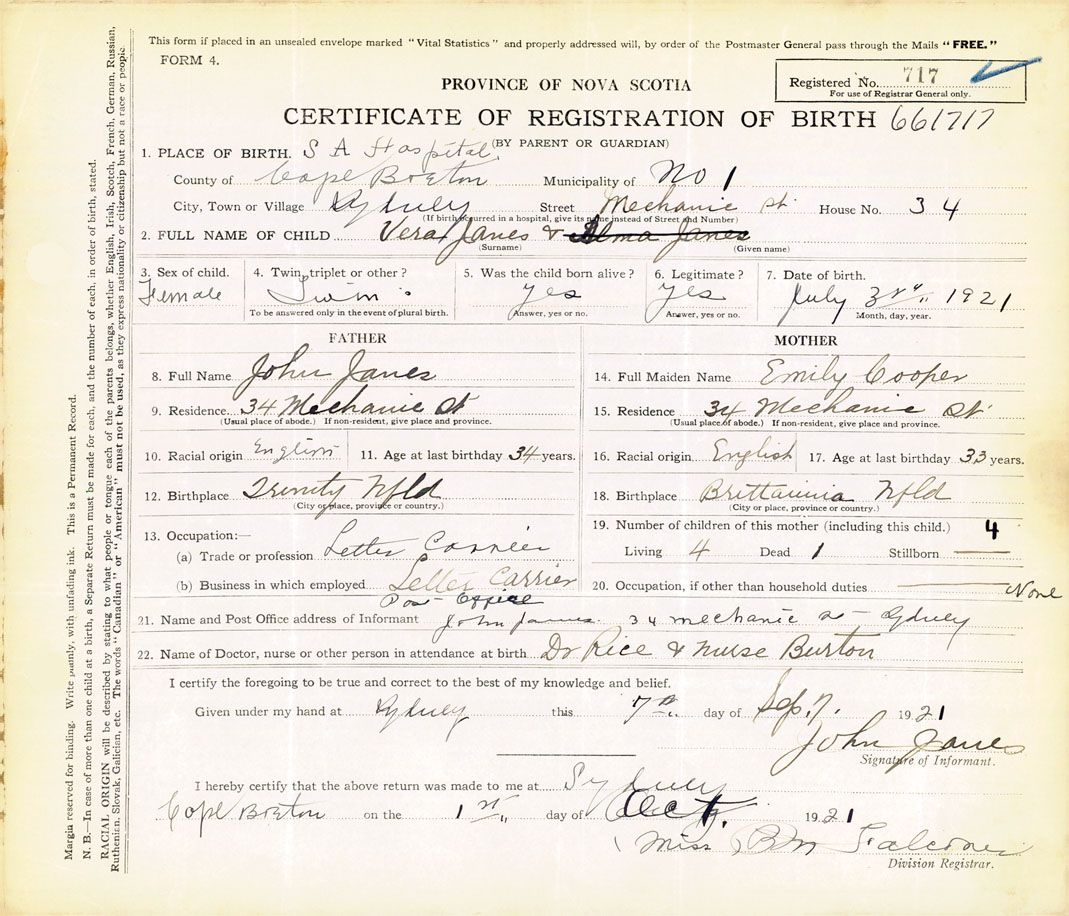 This form if placed in an unsealed envelope marked "Vital Statistics" and properly addressed will, by order of the Postmaster General pass through the Mails "FREE."
FORM 4.
Registered No. 717
For use of Registrar General only.
PROVINCE OF NOVA SCOTIA
CERTIFICATE OF REGISTRATION OF BIRTH 661717
(BY PARENT OR GUARDIAN)
1. PLACE OF BIRTH. S A Hospital
County of Cape Breton Municipality of No 1
City, Town or Village Sydney Street Mechanic St. House No. 34
(If birth occurred in a hospital, give its name instead of Street and Number)
2. FULL NAME OF CHILD Vera Janes & Alma Janes
(Surname) (Given name)
3. Sex of child. 4. Twin, triplet or other? 5. Was the child born alive? 6. Legitimate? 7. Date of birth.
Female Twin yes yes July 3rd 1921
To be answered only in the event of plural birth. Answer, yes or no. Answer, yes or no. Month, day, year.
FATHER
8. Full Name John Janes
9. Residence 34 Mechanic St
(Usual place of abode.) If non-resident, give place and province.
10. Racial origin English 11. Age at last birthday 34 years.
12. Birthplace Trinity Nfld
(City or place, province or country.)
13. Occupation:—
(a) Trade or profession Letter Carrier
(b) Business in which employed Letter Carrier
Post Office
MOTHER
14. Full Maiden Name Emily Cooper
15. Residence 34 Mechanic St
(Usual place of abode.) If non-resident, give place and province.
16. Racial origin English 17. Age at last birthday 33 years.
18. Birthplace Brittannia Nfld
(City or place, province or country.)
19. Number of children of this mother (including this child.) 4
Living 4 Dead 1 Stillborn —
20. Occupation, if other than household duties None
21. Name and Post Office address of Informant John Janes. 34 mechanic St Sydney
22. Name of Doctor, nurse or other person in attendance at birth Dr Rice & Nurse Burton
I certify the foregoing to be true and correct to the best of my knowledge and belief.
Given under my hand at Sydney this 7th day of Sep. 7. 1921
John Janes
Signature of Informant.
I hereby certify that the above return was made to me at Sydney
Cape Breton on the 1st day of Oct. 1921
Miss B M Falconer
Division Registrar.
Margin reserved for binding. Write plainly, with unfading ink. This is a Permanent Record.
N. B.—In case of more than one child at a birth, a Separate Return must be made for each, and the number of each, in order of birth, stated.
RACIAL ORIGIN will be described by stating to what people or tongue each of the parents belongs, whether English, Irish, Scotch, French, German, Russian,
Ruthenian, Slovak, Galician, etc. The words "Canadian" or "American" must not be used, as they express nationality or citizenship but not a race or people.